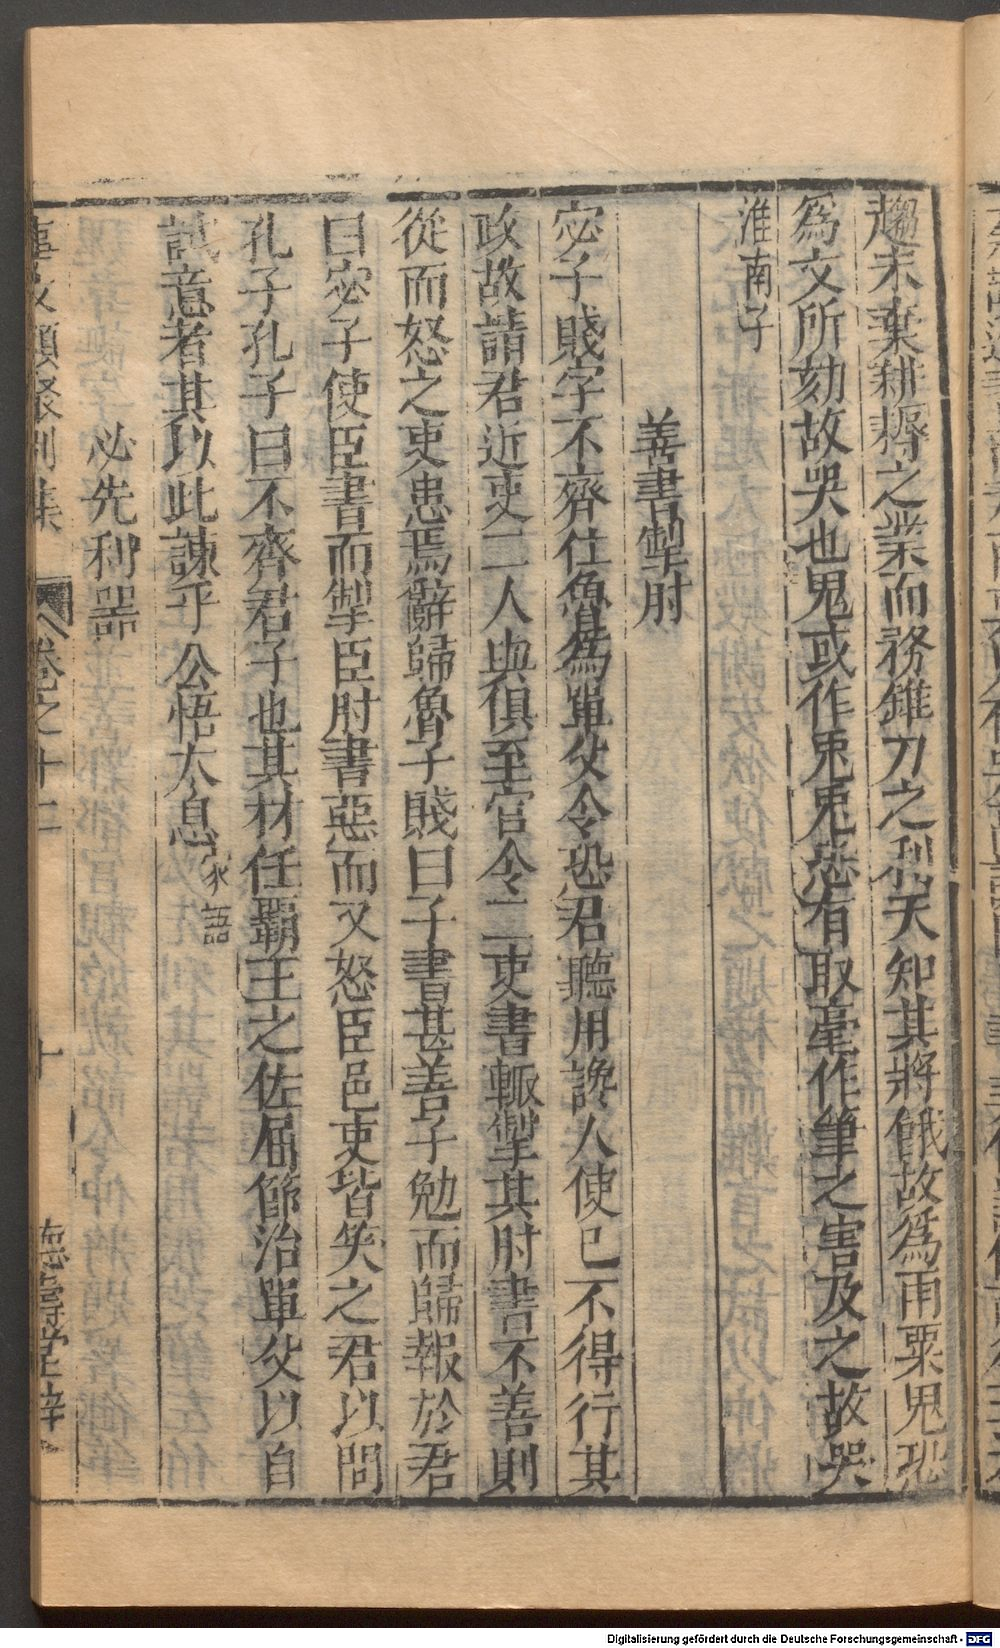 趨末棄耕耨之業而務錐刀之利天知其將餓故爲雨粟鬼恐
爲文所劾故哭也鬼或作兎兎恐有取毫作筆之害及之故哭
淮南子
善書掣肘
宓子賤字不齊仕魯爲單父令恐君聽用讒人使己不得行其
政故請君近吏二人與俱至官令二吏書輙掣其肘書不善則
從而怒之吏患焉辭歸魯子賤曰子書甚善子勉而歸報於君
曰宓子使臣書而掣臣肘書惡而又怒臣邑吏皆笑之君以問
孔子孔子曰不齊君子也其材任覇王之佐屈節治單父以自
試意者其以此諫乎公悟太息家語
必先利器
事文類聚別集 卷之十二 十 德壽堂梓
Digitalisierung gefördert durch die Deutsche Forschungsgemeinschaft - DFG